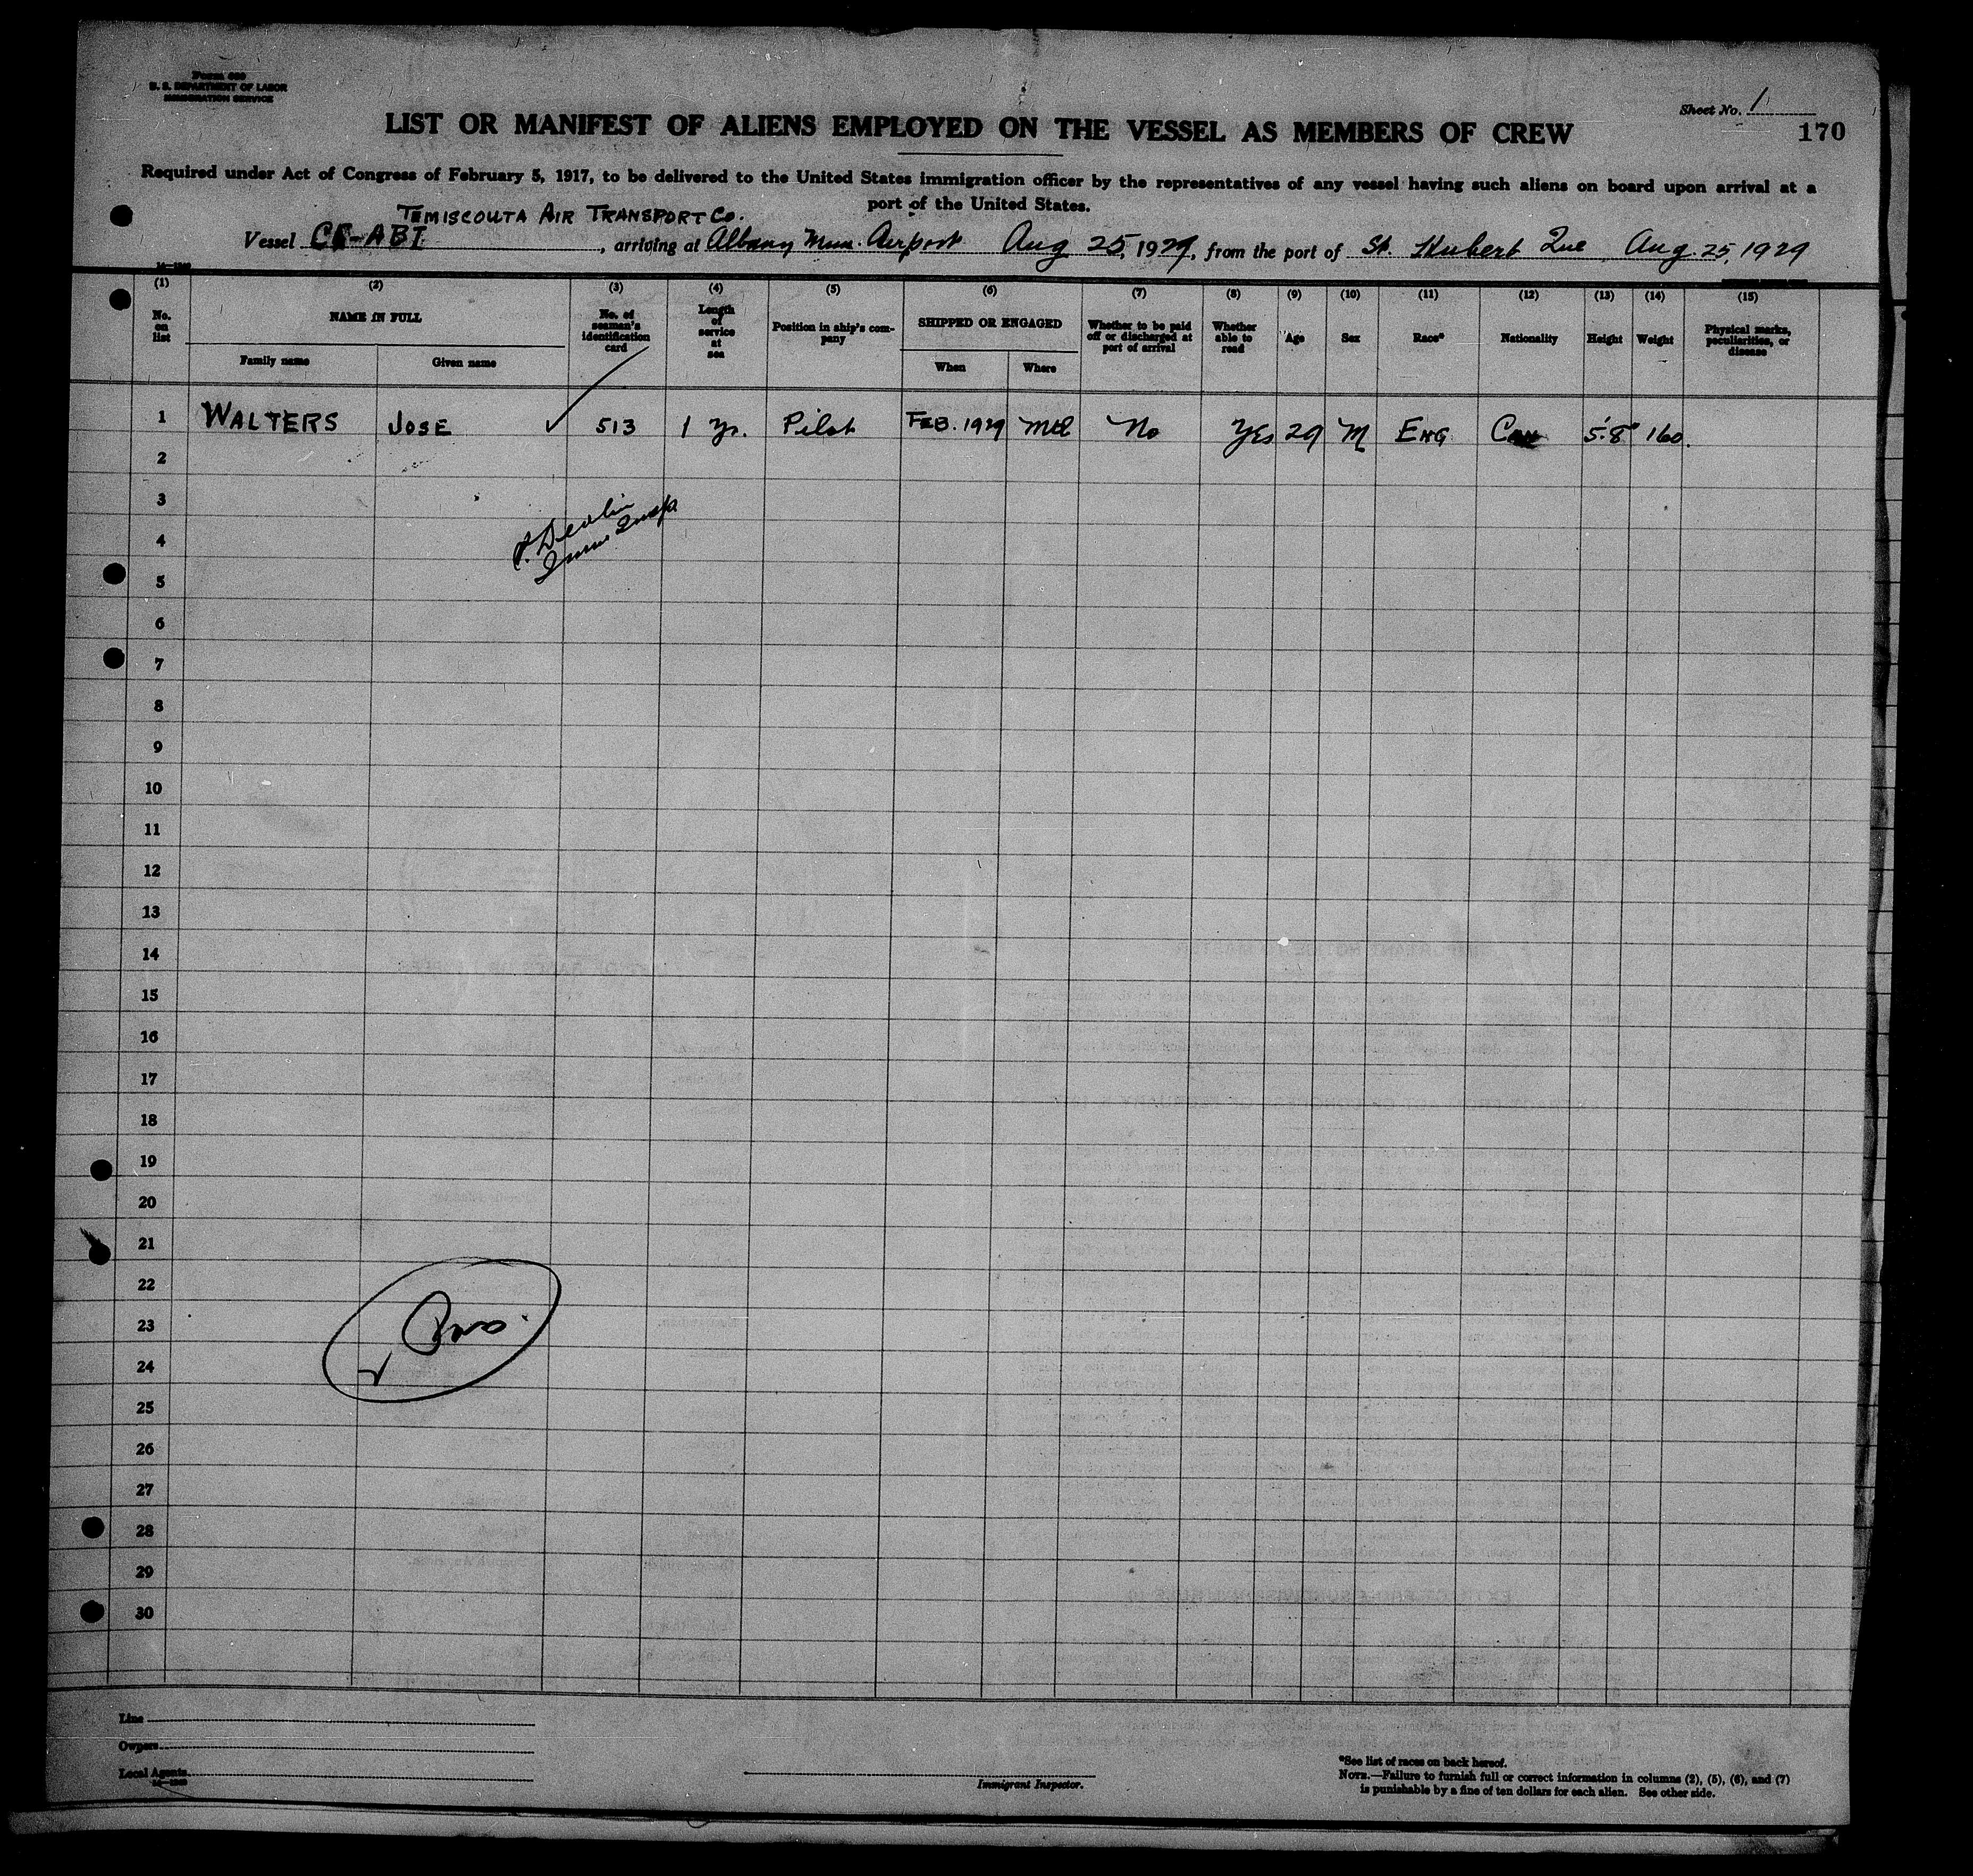 Form 689
U. S. DEPARTMENT OF LABOR
IMMIGRATION SERVICE
Sheet No. 1
170
LIST OR MANIFEST OF ALIENS EMPLOYED ON THE VESSEL AS MEMBERS OF CREW
Required under Act of Congress of February 5, 1917, to be delivered to the United States immigration officer by the representatives of any vessel having such aliens on board upon arrival at a
port of the United States.
TEMISCOUTA AIR TRANSPORT CO.
Vessel CF-ABI, arriving at Albany Mun. Airport Aug 25, 1929, from the port of St. Hubert Que Aug. 25, 1929
14—1240
(1) (2) (3) (4) (5) (6) (7) (8) (9) (10) (11) (12) (13) (14) (15)
No. on list
NAME IN FULL
Family name
Given name
No. of seaman's identification card
Length of service at sea
Position in ship's company
SHIPPED OR ENGAGED
When
Where
Whether to be paid off or discharged at port of arrival
Whether able to read
Age
Sex
Race*
Nationality
Height
Weight
Physical marks, peculiarities, or disease
1 WALTERS JOSE 513 1 yr. Pilot FEB. 1929 Mtl No Yes 29 M ENG Can 5'.8" 160.
2
3
P. Devlin
Imm Insp
4
5
6
7
8
9
10
11
12
13
14
15
16
17
18
19
20
21
22
23
24
25
26
27
28
29
30
Line
Owners
Local Agents
14—1240
Immigrant Inspector.
*See list of races on back hereof.
NOTE.—Failure to furnish full or correct information in columns (2), (5), (6), and (7)
is punishable by a fine of ten dollars for each alien. See other side.